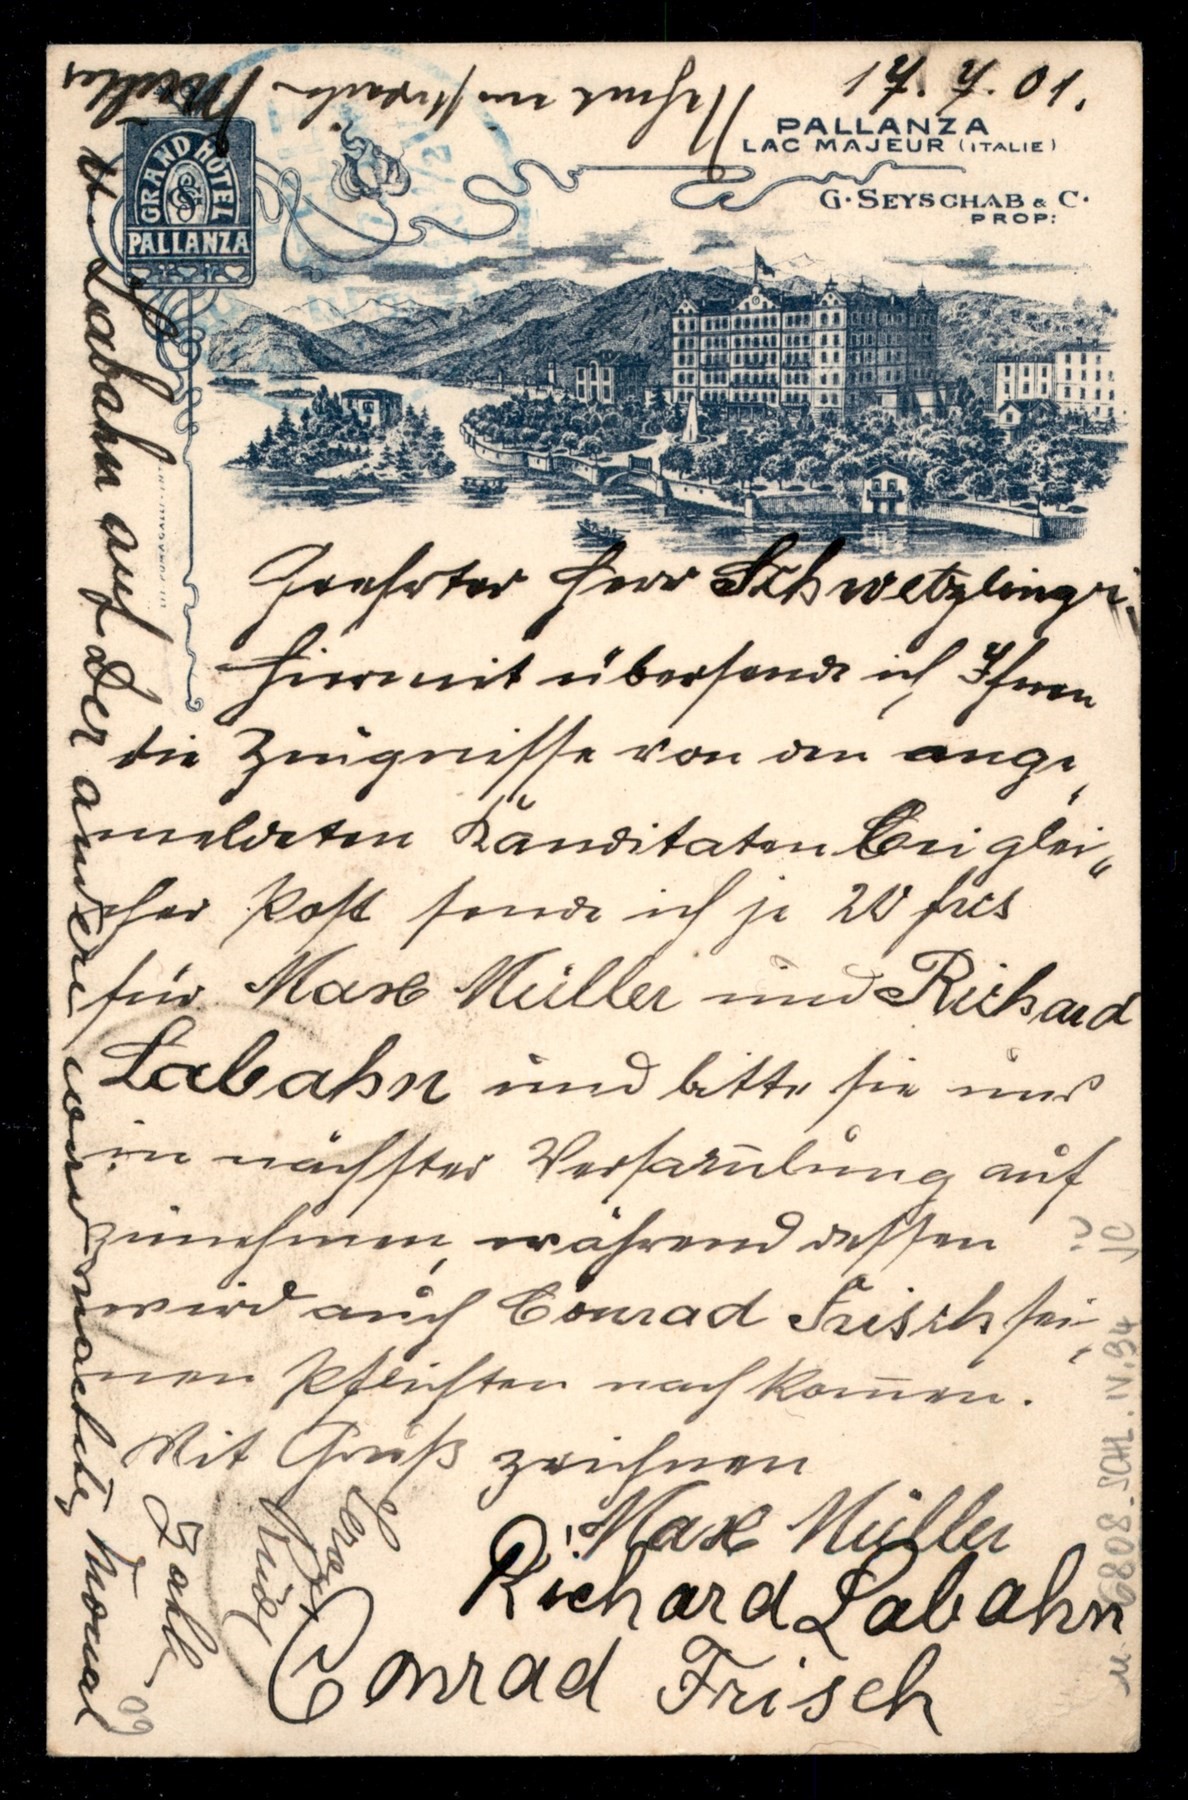 17. 7. 01.
PALLANZA
LAC MAJEUR (ITALIE)
G. SEYSCHAB & C.
PROP:
GRAND HÔTEL
PALLANZA
Geehrter Herr Schwetzlinger,
Hiermit übersende ich Ihnen
die Zeugnisse von den ange„
meldeten Kanditaten Bei glei„
cher Post sende ich je 20 frcs
für Max Müller und Richard
Labahn und bitte sie uns
in nächster Versam̅lung auf
zunehmen, während dessen
wird auch Conrad Frisch sei„
nen Pflichten nachkom̅en.
Mit Gruß zeichnen
Max Müller
Richard Labahn
Conrad Frisch
Müller
u. Labahn auf der andere wird nächste Monat
Zahl
6808 SCHL. IV. 94
09